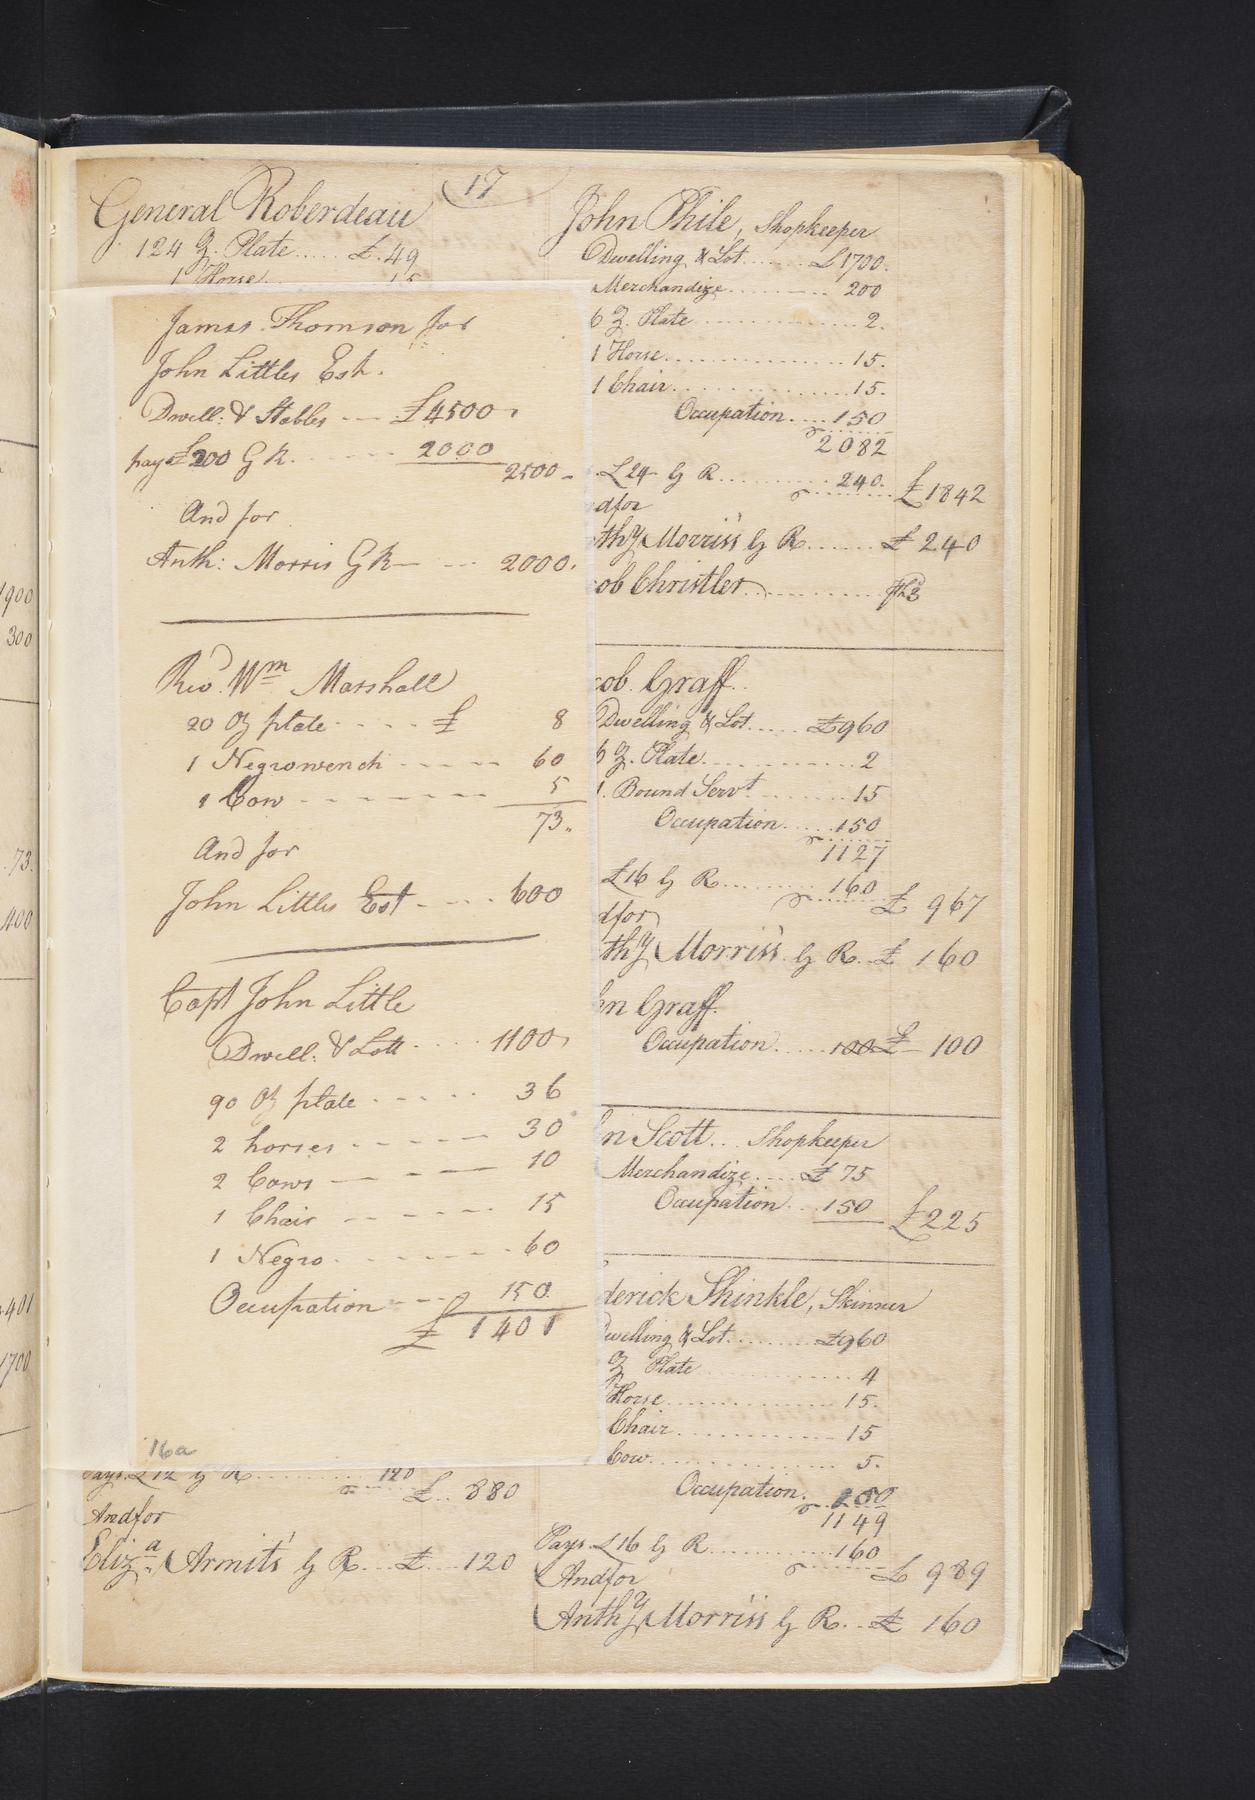 17
General Roberdeau
124 Z. Plate ..... £. 49
1 Horse ... 15
James Thomson for
John Littles Est.
Dwell: & Stables --- £4500.
pays £200 G R. ----- 2000
2500-
And for
Anth: Morris G R - --- 2000.
Revd. Wm. Marshall
20 Oz plate ---- £ 8
1 Negrowench ----- 60
1 Cow ------- 5
73.
And for
John Littles Est ---- 600
Capt John Little
Dwell: & Lott ---- 1100,
90 Oz plate ----- 36
2 horses ----- 30
2 Cows --- 10
1 Chair ----- 15
1 Negro ------ 60
Occupation --- 150.
£ 1401
16a
Pays. £12 G R .......... 120
£.. 880
And for
Eliza. Armits G R... £ .... 120
John Phile, Shopkeeper
Dwelling & Lot ....... £1700.
Merchandize ......... 200
6 Z. Plate ............ 2.
1 Horse ............... 15.
1 Chair .............. 15.
Occupation .... 150
2082
£24 G R .......... 240. £1842
dfor
thy Morris's G R ....... £ 240
ob Christler ..............
cob Graff..
Dwelling & Lot ..... £960
6 Z. Plate ............ 2
1. Bound Servt ......... 15
Occupation ..... 150
1127
£16 G R ........ 160 £ 967
dfor
thy Morris's G R.. £ 160
hn Graff.
Occupation ..... 100 £ 100
hn Scott... Shopkeeper
Merchandize .... £ 75
Occupation ... 150 £225
derick Shinkle, Skinner
Dwelling & Lot ........ £960
Z Plate ............. 4
Horse ............... 15.
Chair .............. 15
Cow ................ 5.
Occupation.
1149
Pays. £16 G R ............ 160 £ 989
And for
Anthy Morris's G R... £ 160
1900
300
73.
400
401
1700